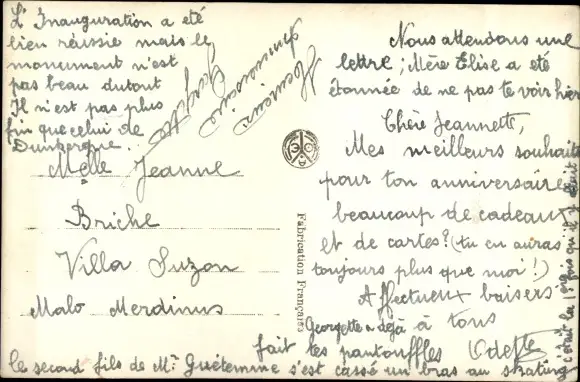 L'Inauguration a été
bien réussie mais le
monument n'est
pas beau dutout
Il n'est pas plus
fin que celui de
Dunkerque.
Heureux
Anniversaire
Georgette
Melle Jeanne
Briche
Villa Suzon
Malo Merdinus
Fabrication Française
Nous attendons une
lettre; Mère Elise a été
étonnée de ne pas te voir hier
Chère Jeannette,
Mes meilleurs souhaits
pour ton anniversaire,
beaucoup de cadeaux
et de cartes? (tu en auras
toujours plus que moi!)
Affectueux baisers
à tous
Odette
Georgette a déjà
fait tes pantouffles
le second fils de Mr Guétemme s'est cassé un bras au skating
c'était la 1ère fois qu'il y était